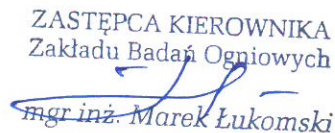 ZASTĘPCA KIEROWNIKA
Zakładu Badań Ogniowych
mgr inż. Marek Łukomski